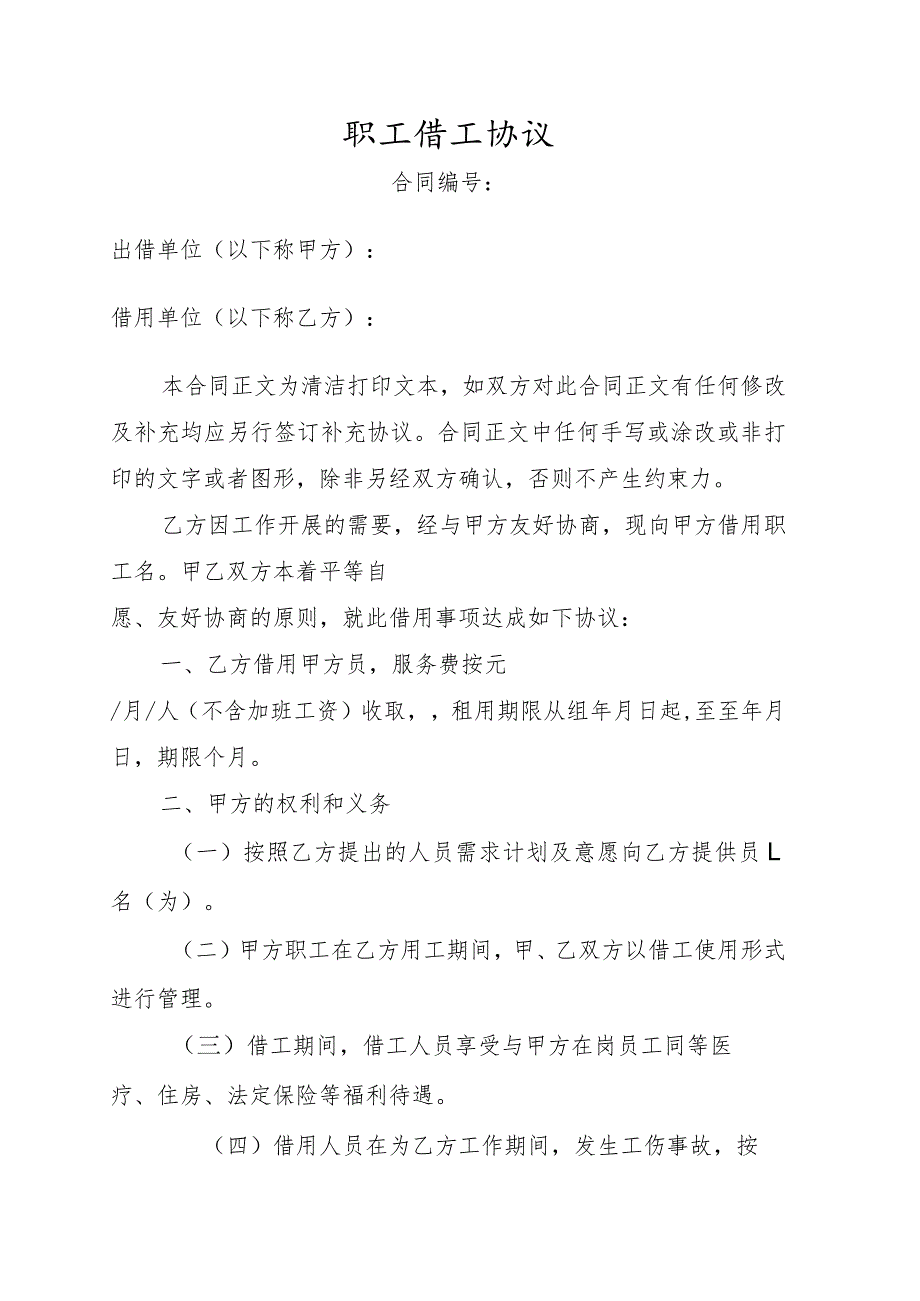 职工借工协议
合同编号：
出借单位（以下称甲方）：
借用单位（以下称乙方）：
本合同正文为清洁打印文本，如双方对此合同正文有任何修改
及补充均应另行签订补充协议。合同正文中任何手写或涂改或非打
印的文字或者图形，除非另经双方确认，否则不产生约束力。
乙方因工作开展的需要，经与甲方友好协商，现向甲方借用职
工名。甲乙双方本着平等自
愿、友好协商的原则，就此借用事项达成如下协议：
一、乙方借用甲方员，服务费按元
/月/人（不含加班工资）收取，，租用期限从组年月日起,至至年月
日，期限个月。
二、甲方的权利和义务
（一）按照乙方提出的人员需求计划及意愿向乙方提供员L
名（为）。
（二）甲方职工在乙方用工期间，甲、乙双方以借工使用形式
进行管理。
（三）借工期间，借工人员享受与甲方在岗员工同等医
疗、住房、法定保险等福利待遇。
（四）借用人员在为乙方工作期间，发生工伤事故，按